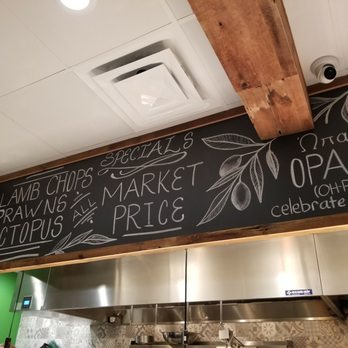 SPECIALS
LAMB CHOPS
PRAWNS
OCTOPUS
ALL
MARKET
PRICE
Ωπα
OPA
(OH-P
celebrate